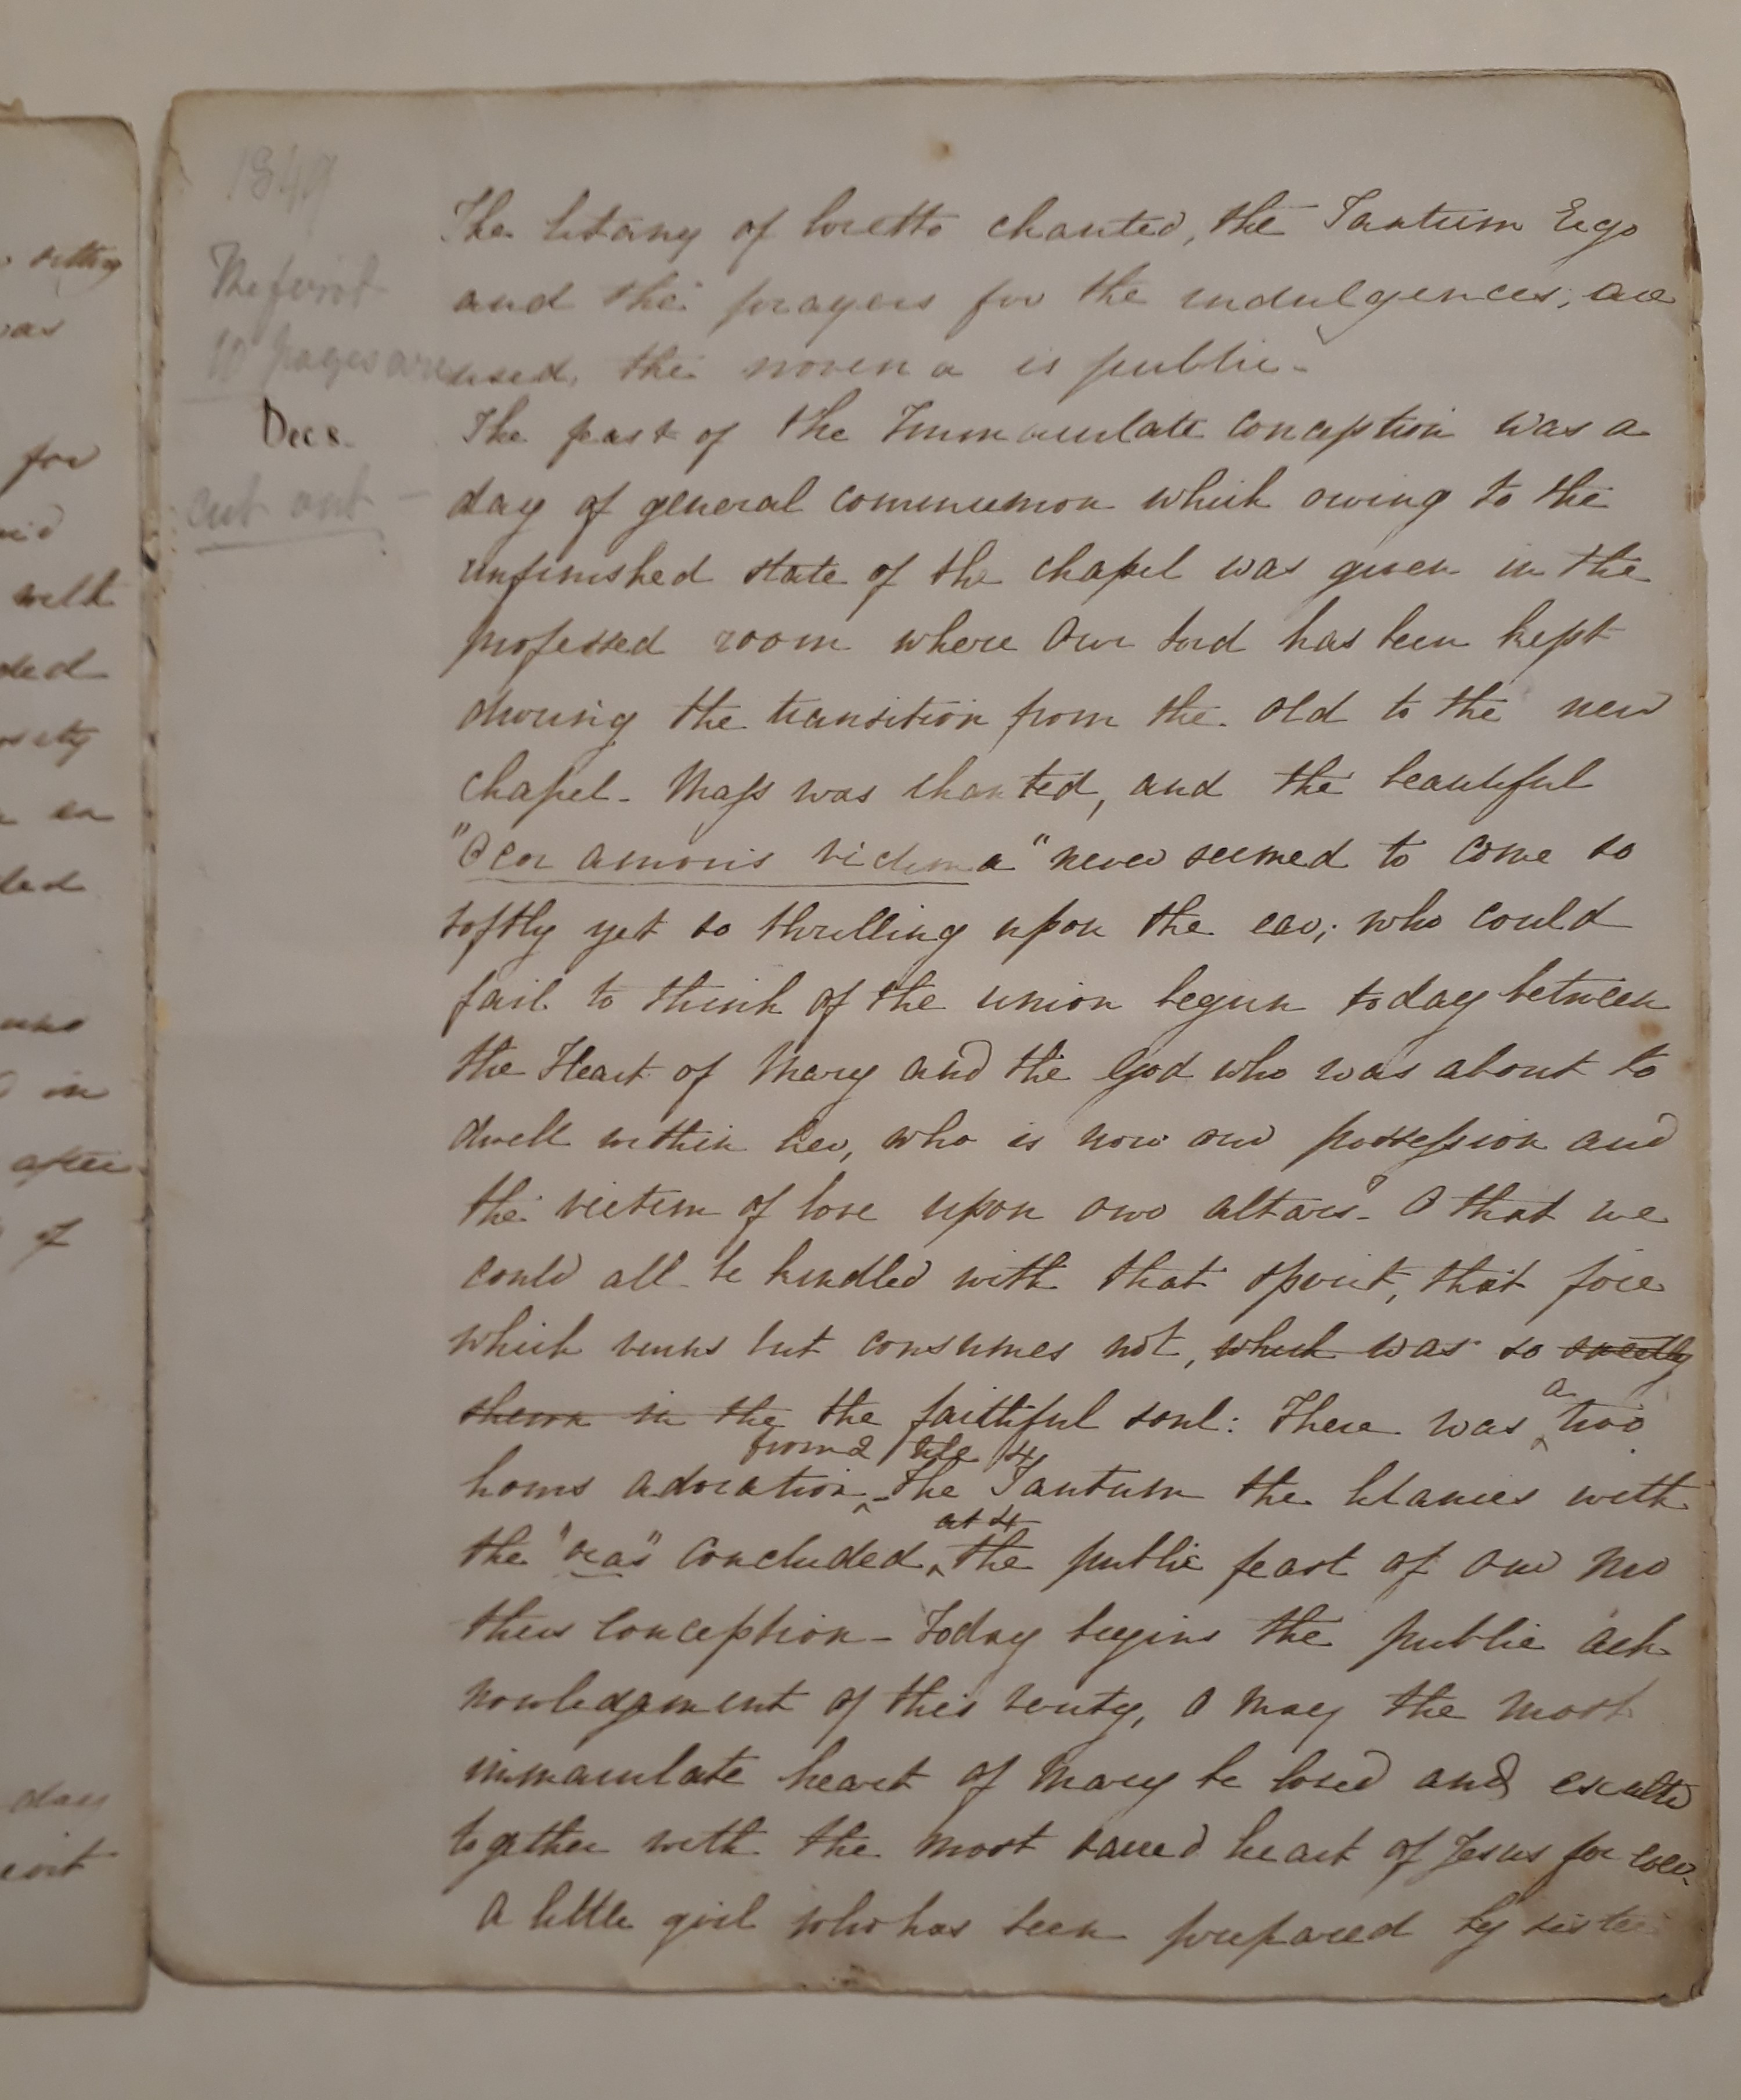 1849
The first
10 pages are
Dec 8.
cut out —
The litany of loretto chanted, the Tantum Ergo
and the prayers for the indulgences, are
used, the novena is public.
The feast of the Immaculate conception was a
day of general communion which owing to the
unfinished state of the chapel was given in the
professed room where Our Lord has been kept
during the transition from the old to the new
chapel - Mass was chanted, and the beautiful
"O Cor amoris victima" never seemed to come so
softly yet so thrilling upon the ear; who could
fail to think of the union begun today between
the Heart of Mary and the God who was about to
dwell within her, who is now our possession and
the victim of love upon our altars - O that we
could all be kindled with that spirit, that fire
which burns but consumes not, which was so sweetly
shewn in the the faithful soul: There was a two
hours adoration from 2 till 4 - The Tantum the litanies with
the "neas" concluded, at 4 the public feast of our Mo
thers Conception - Today begins the public ack
nowledgement of this verity, O may the most
immaculate heart of Mary be loved and exalted
together with the most sacred heart of Jesus for ever.
A little girl who has been prepared by sister
setting
for
with
ded
en
led
in
after
of